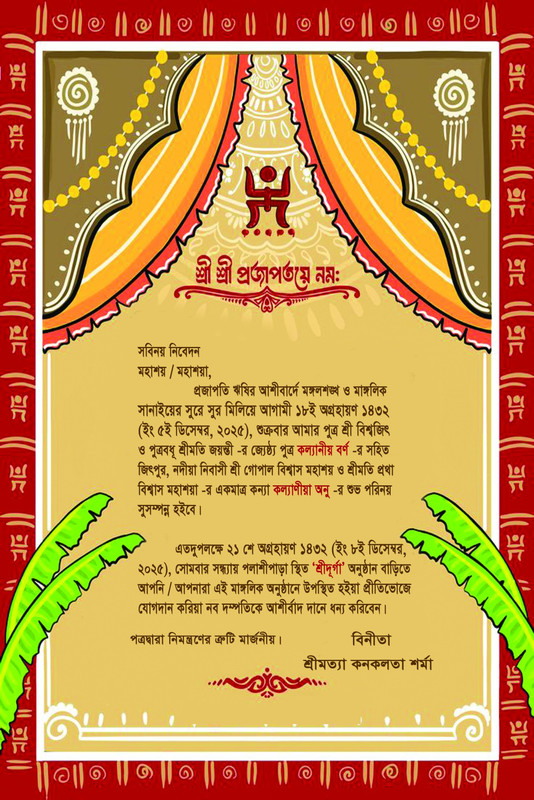 শ্রী শ্রী প্রজাপতয়ে নমঃ
সবিনয় নিবেদন
মহাশয় / মহাশয়া,
প্রজাপতি ঋষির আশীবার্দে মঙ্গলশঙ্খ ও মাঙ্গলিক
সানাইয়ের সুরে সুর মিলিয়ে আগামী ১৮ই অগ্রহায়ণ ১৪৩২
(ইং ৫ই ডিসেম্বর, ২০২৫), শুক্রবার আমার পুত্র শ্রী বিশ্বজিৎ
ও পুত্রবধূ শ্রীমতি জয়ন্তী -র জ্যেষ্ঠ্য পুত্র কল্যানীয় বর্ণ -র সহিত
জিৎপুর, নদীয়া নিবাসী শ্রী গোপাল বিশ্বাস মহাশয় ও শ্রীমতি প্রথা
বিশ্বাস মহাশয়া -র একমাত্র কন্যা কল্যাণীয়া অনু -র শুভ পরিনয়
সুসম্পন্ন হইবে।
এতদুপলক্ষে ২১ শে অগ্রহায়ণ ১৪৩২ (ইং ৮ই ডিসেম্বর,
২০২৫), সোমবার সন্ধ্যায় পলাশীপাড়া স্থিত ‘শ্রীদূর্গা’ অনুষ্ঠান বাড়িতে
আপনি / আপনারা এই মাঙ্গলিক অনুষ্ঠানে উপস্থিত হইয়া প্রীতিভোজে
যোগদান করিয়া নব দম্পতিকে আশীর্বাদ দানে ধন্য করিবেন।
পত্রদ্বারা নিমন্ত্রণের ত্রুটি মার্জনীয়।
বিনীতা
শ্রীমত্যা কনকলতা শর্মা